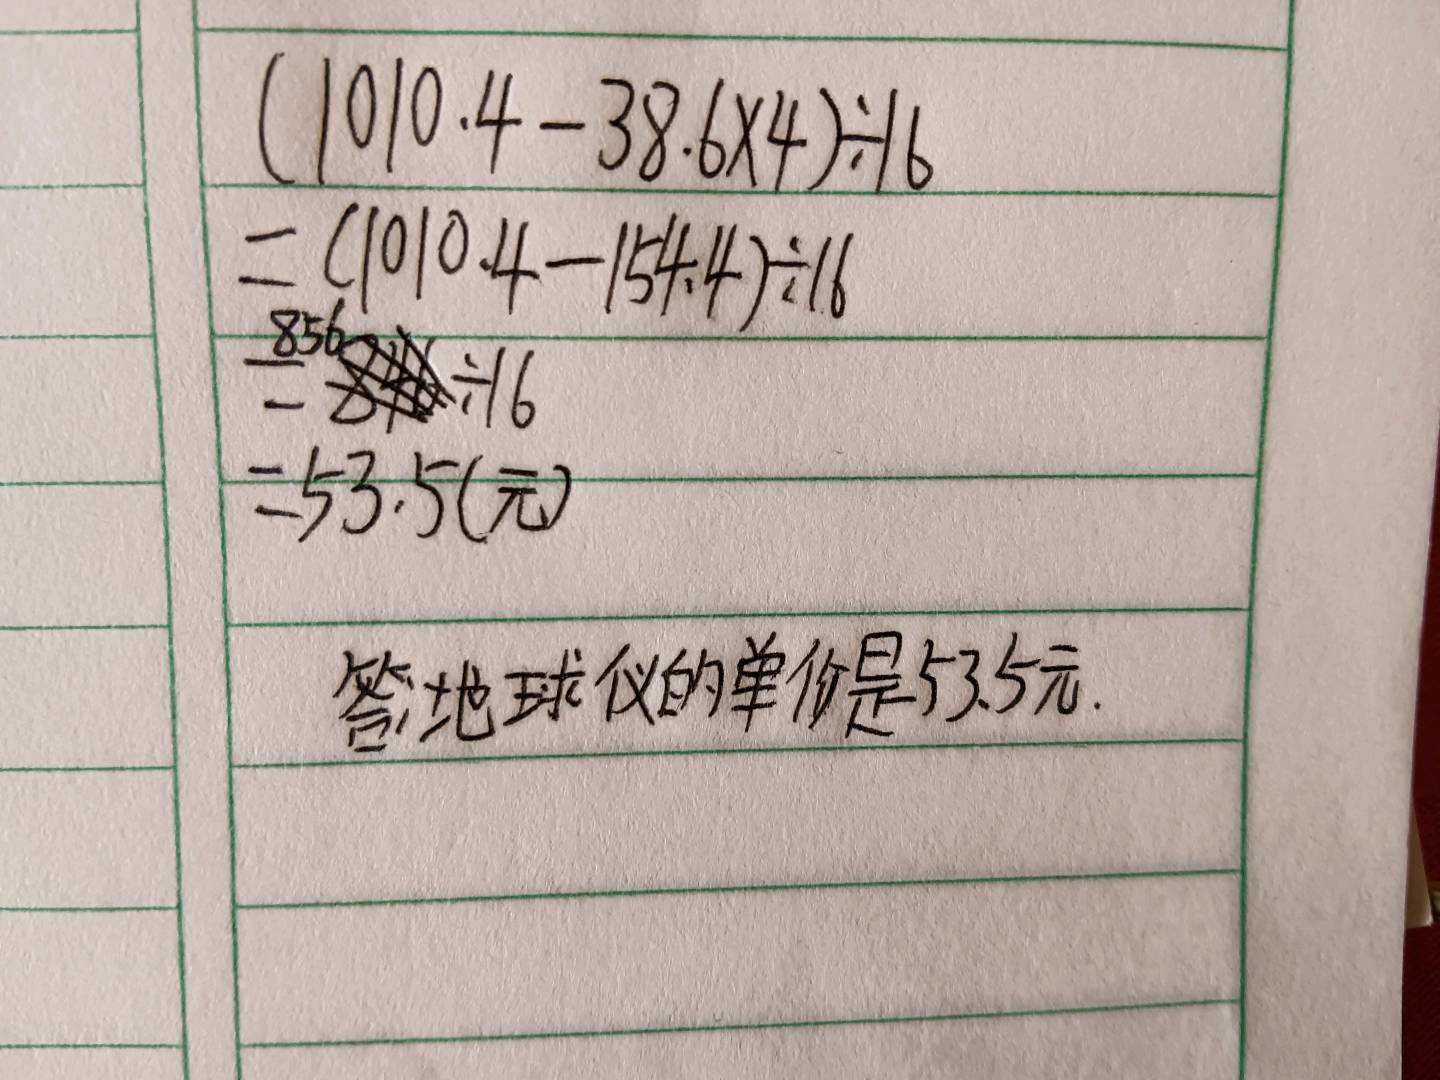 (1010.4-38.6×4)÷16
=(1010.4-154.4)÷16
=856÷16
=53.5(元)
答:地球仪的单价是53.5元.